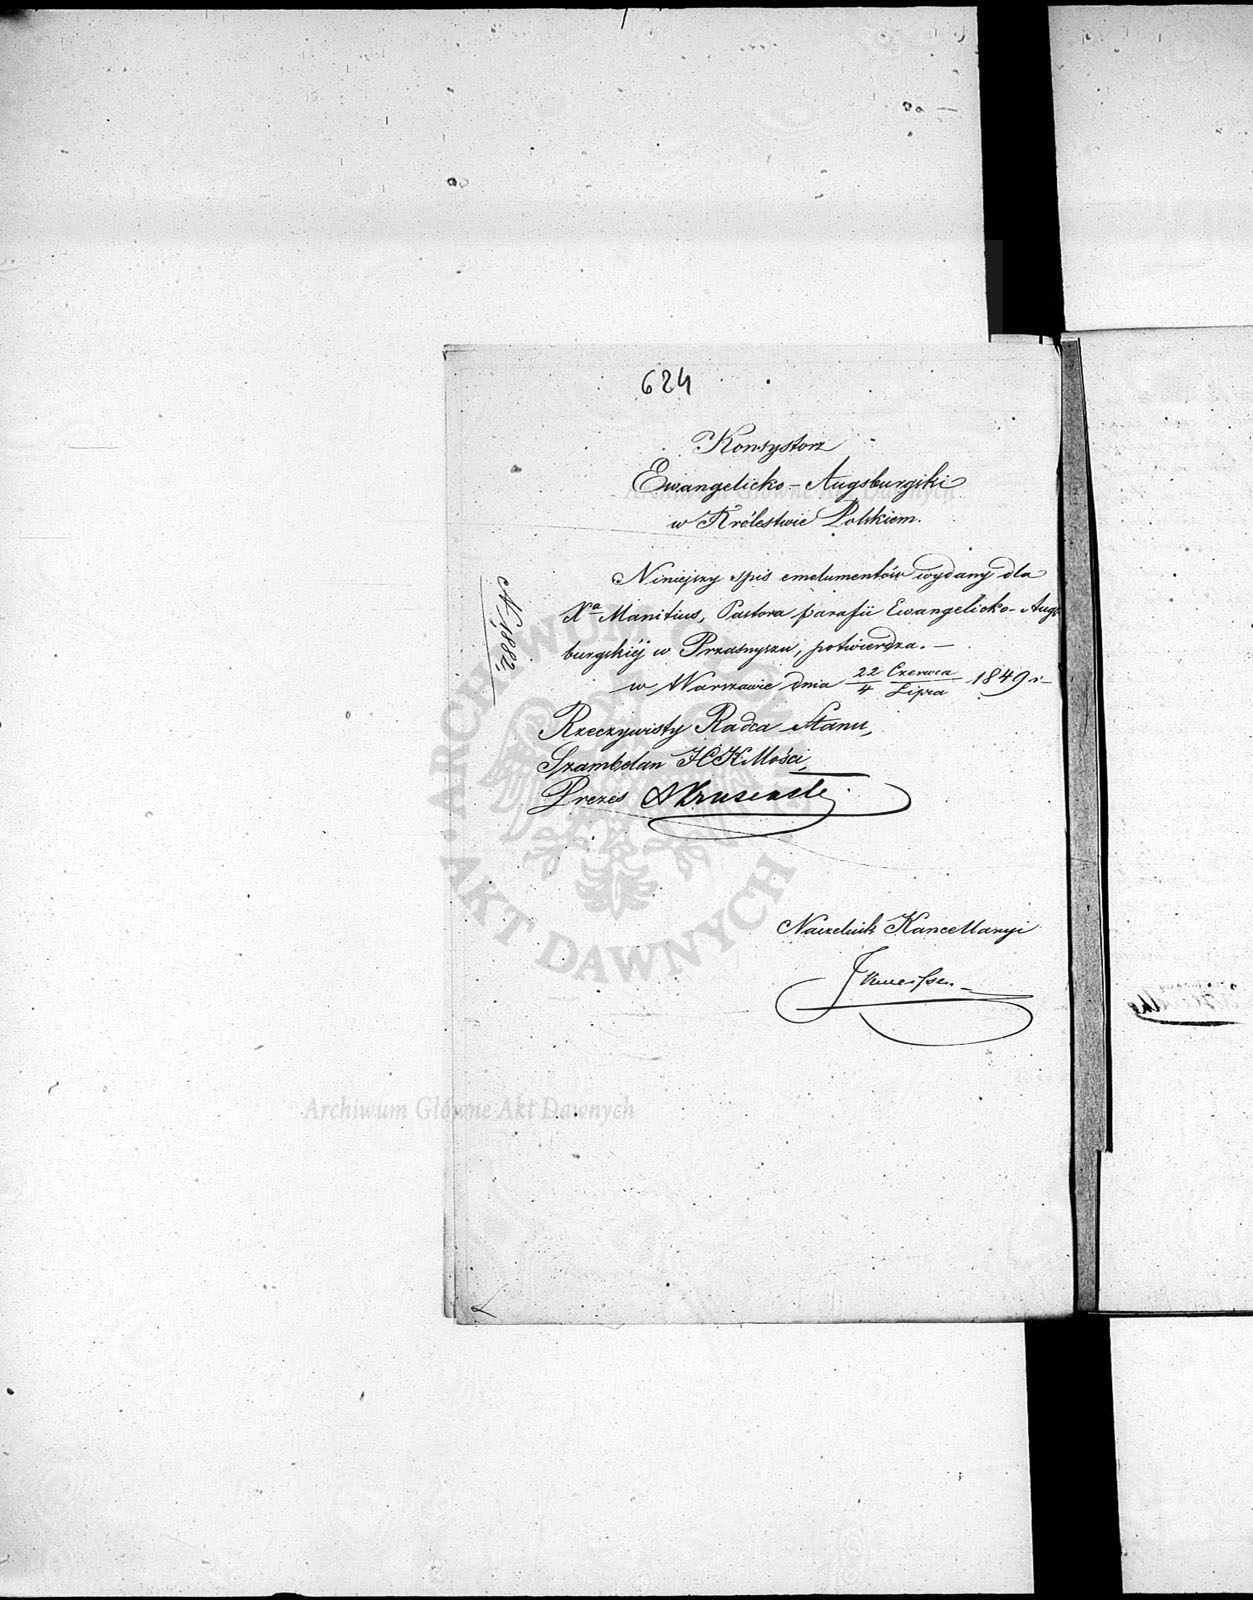 624
Konsystorz
Ewangelicko-Augsburgski
w Królestwie Polskiem.
Niniejszy spis emolumentów wydany dla
Xa Manitius, Pastora parafii Ewangelicko-Augs
burgskiéj w Przasnyszu, potwierdza.-
w Warszawie dnia 22/4 Czerwca/Lipca 1849 r-
Rzeczywisty Radca Stanu,
Szambelan JCKMości,
Prezes
Naczelnik Kancellaryi
N. 1882
ARCHIWUM GŁÓWNE AKT DAWNYCH
Archiwum Główne Akt Dawnych
Archiwum Główne Akt Dawnych